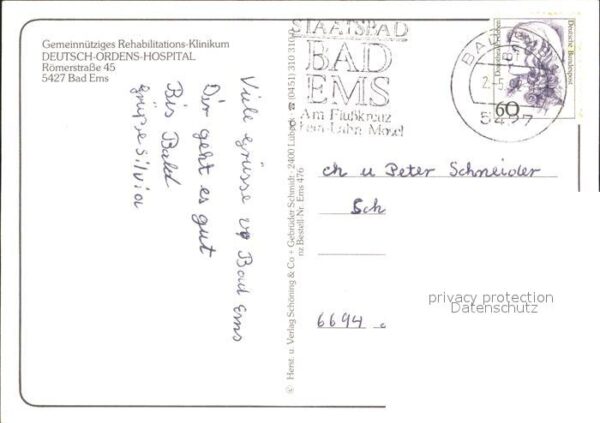 Gemeinnütziges Rehabilitations-Klinikum
DEUTSCH-ORDENS-HOSPITAL
Römerstraße 45
5427 Bad Ems
Viele Grüsse Bad Ems
Dir geht es gut
Bis Bald
grüße Silvia
Herst. u. Verlag Schöning & Co + Gebrüder Schmidt · 2400 Lübeck · ☎ (0451) 310 310
nz Bestell-Nr. Ems 476
STAATSBAD
BAD
EMS
Am Flußkreuz
hein-Lahn-Mosel
BAD
2.-5.
5427
Deutsche Bundespost
60
ch u Peter Schneider
Sch
6694
privacy protection
Datenschutz